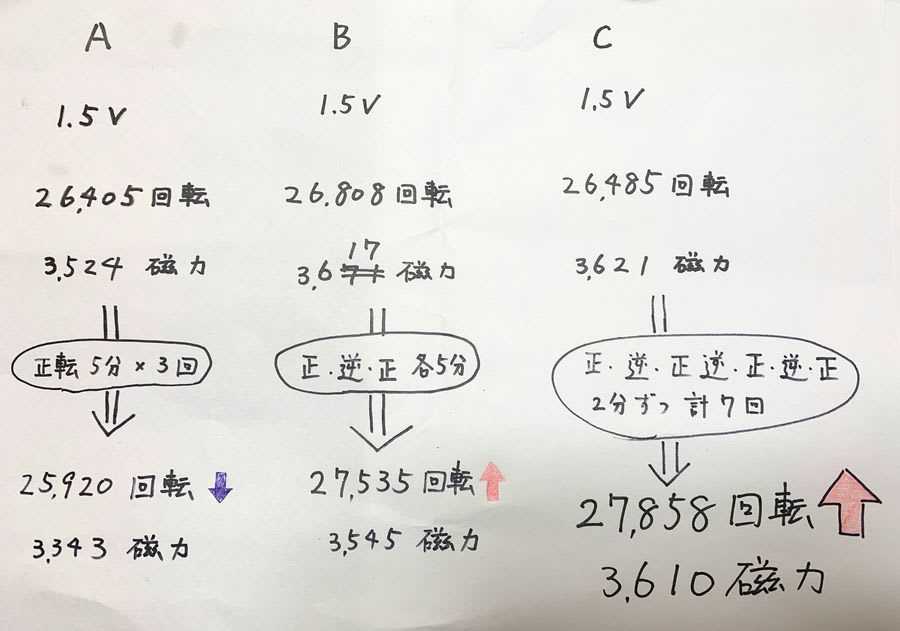 A
1.5V
26,405回転
3,524 磁力
正転 5分 × 3回
25,920 回転
3,343 磁力
B
1.5V
26,808回転
17
3,6 磁力
正・逆・正 各5分
27,535回転
3,545 磁力
C
1.5V
26,485回転
3,621 磁力
正・逆・正 逆・正・逆・正
2分ずつ 計7回
27,858回転
3,610磁力